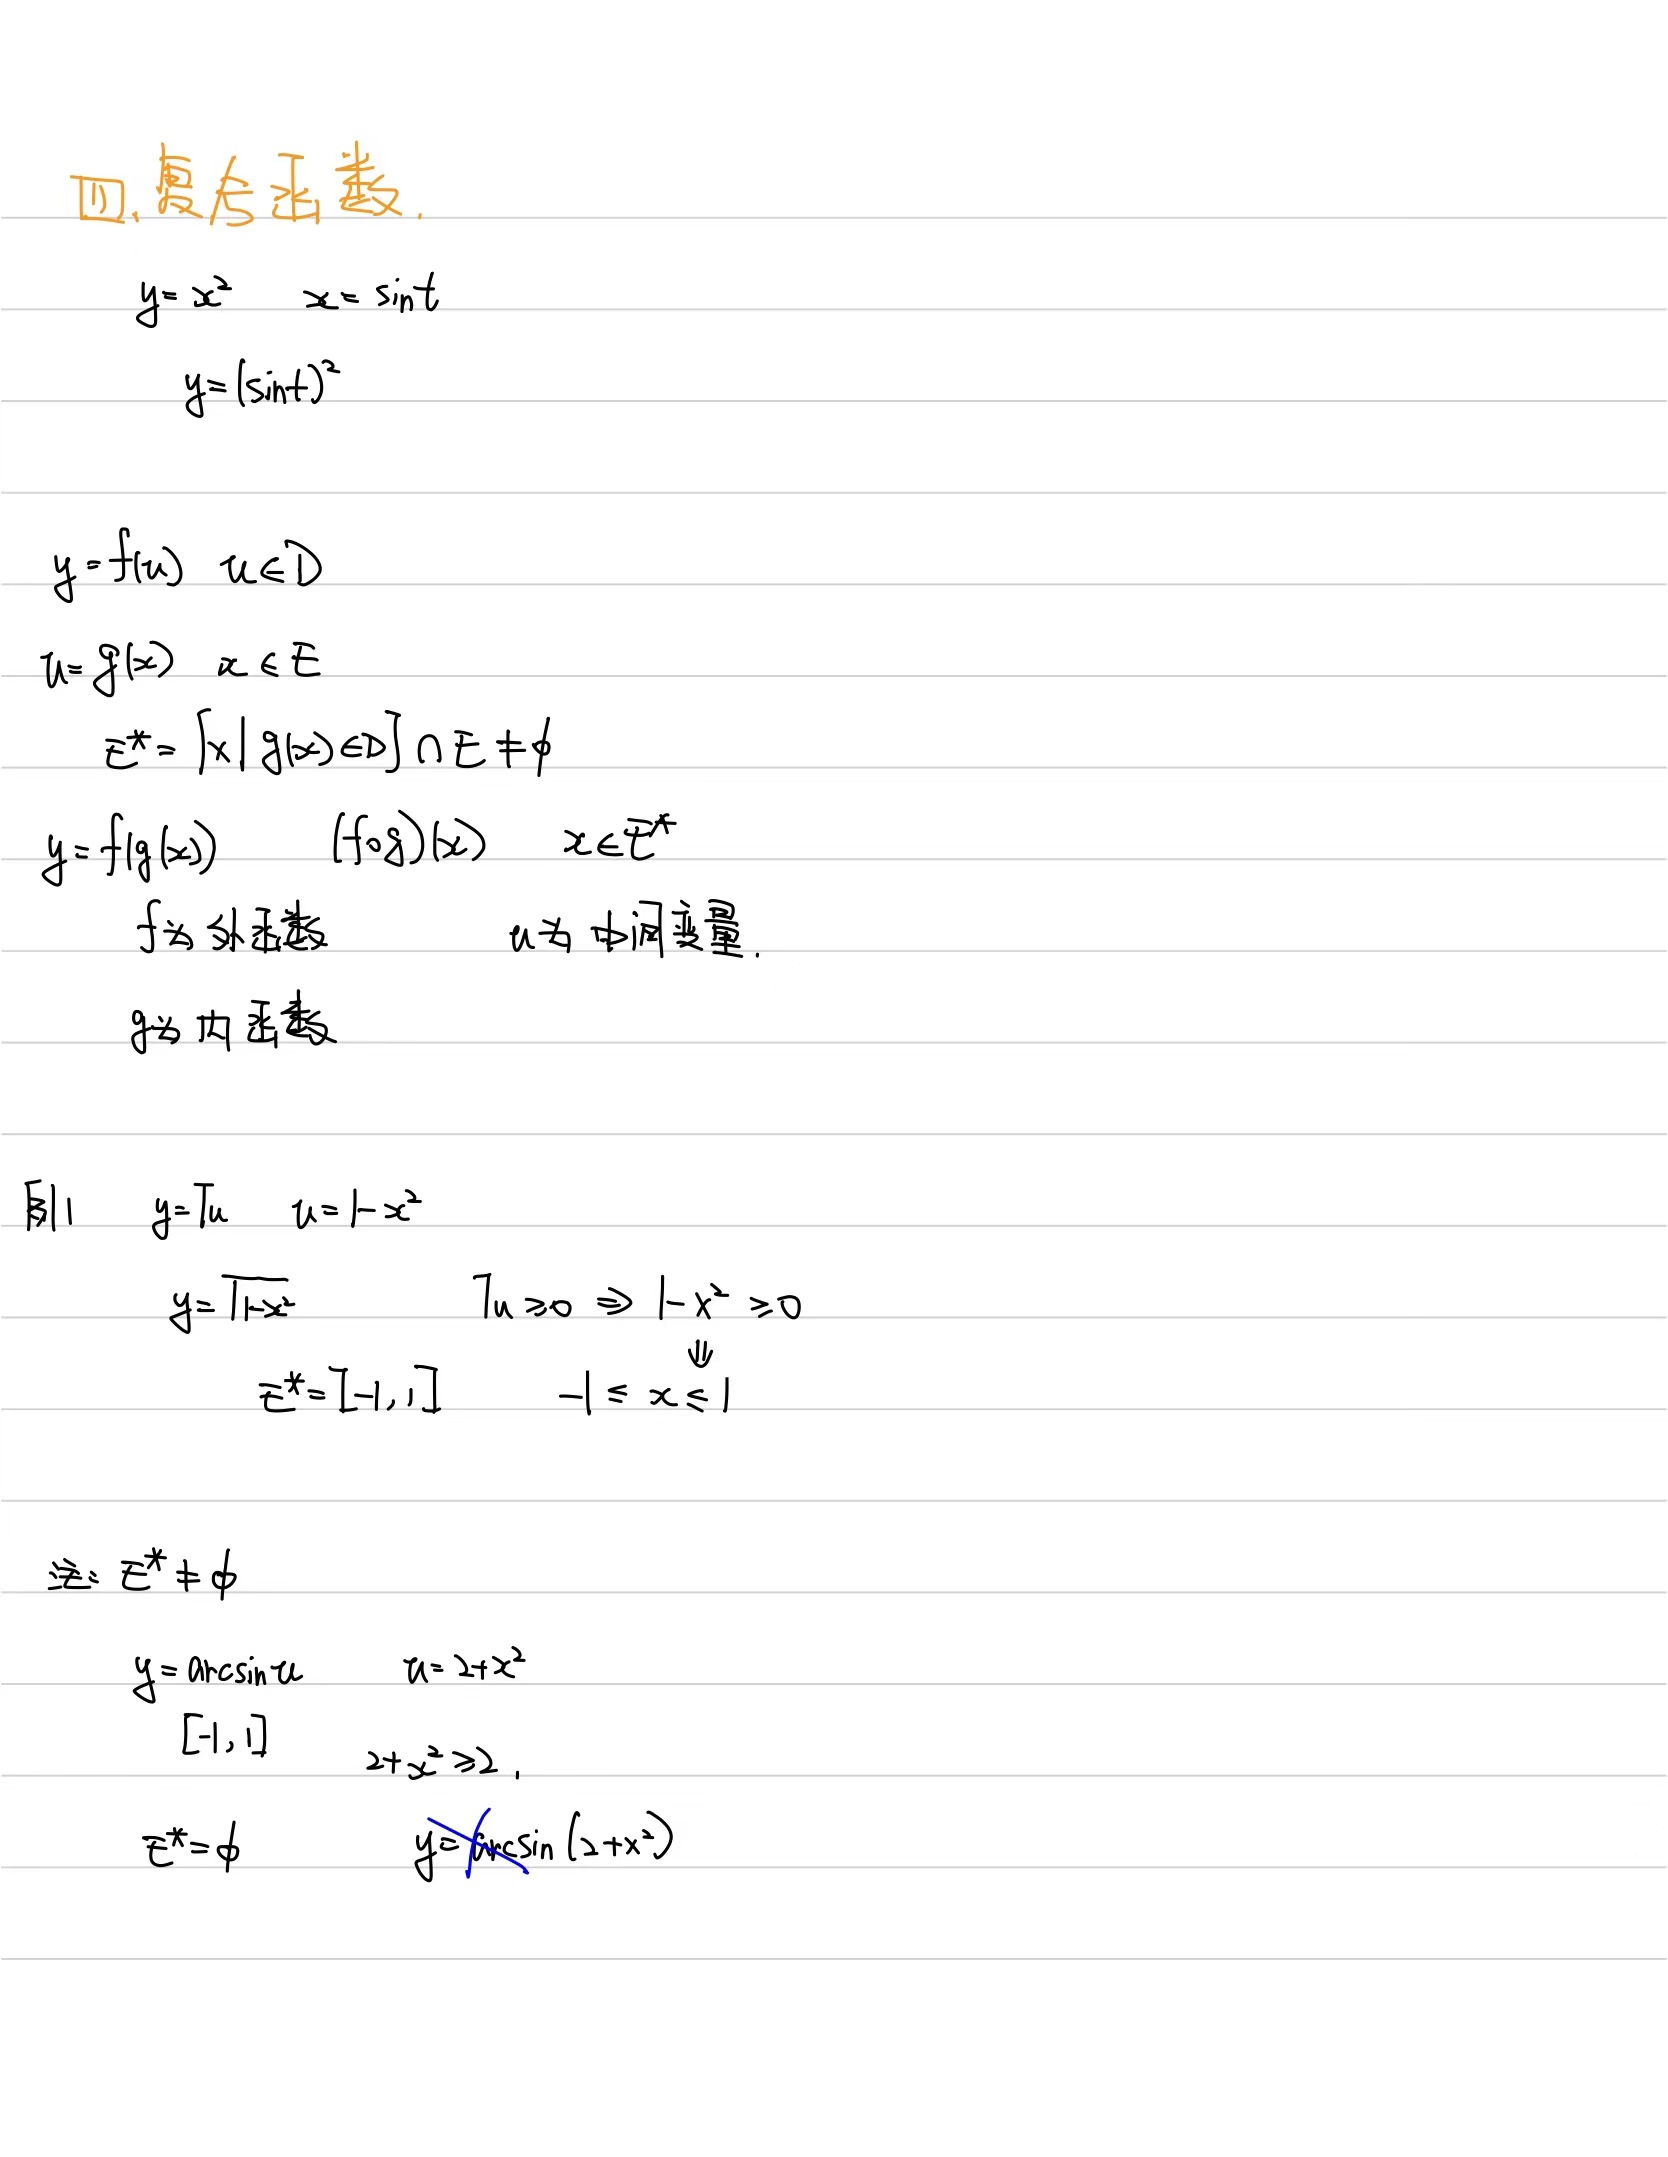 四、复合函数.
y=x² x=sint
y=(sint)²
y=f(u) u∈D
u=g(x) x∈E
E*=[x|g(x)∈D]∩E≠ϕ
y=f(g(x)) (f∘g)(x) x∈E*
f为外函数 u为中间变量.
g为内函数
例1 y=√u u=1-x²
y=√1-x² √u≥0 ⇒ 1-x²≥0
⇓
E*=[-1,1] -1≤x≤1
注: E*≠ϕ
y=arcsinu u=2+x²
[-1,1]
2+x²≥2,
E*=ϕ y=arcsin(2+x²)